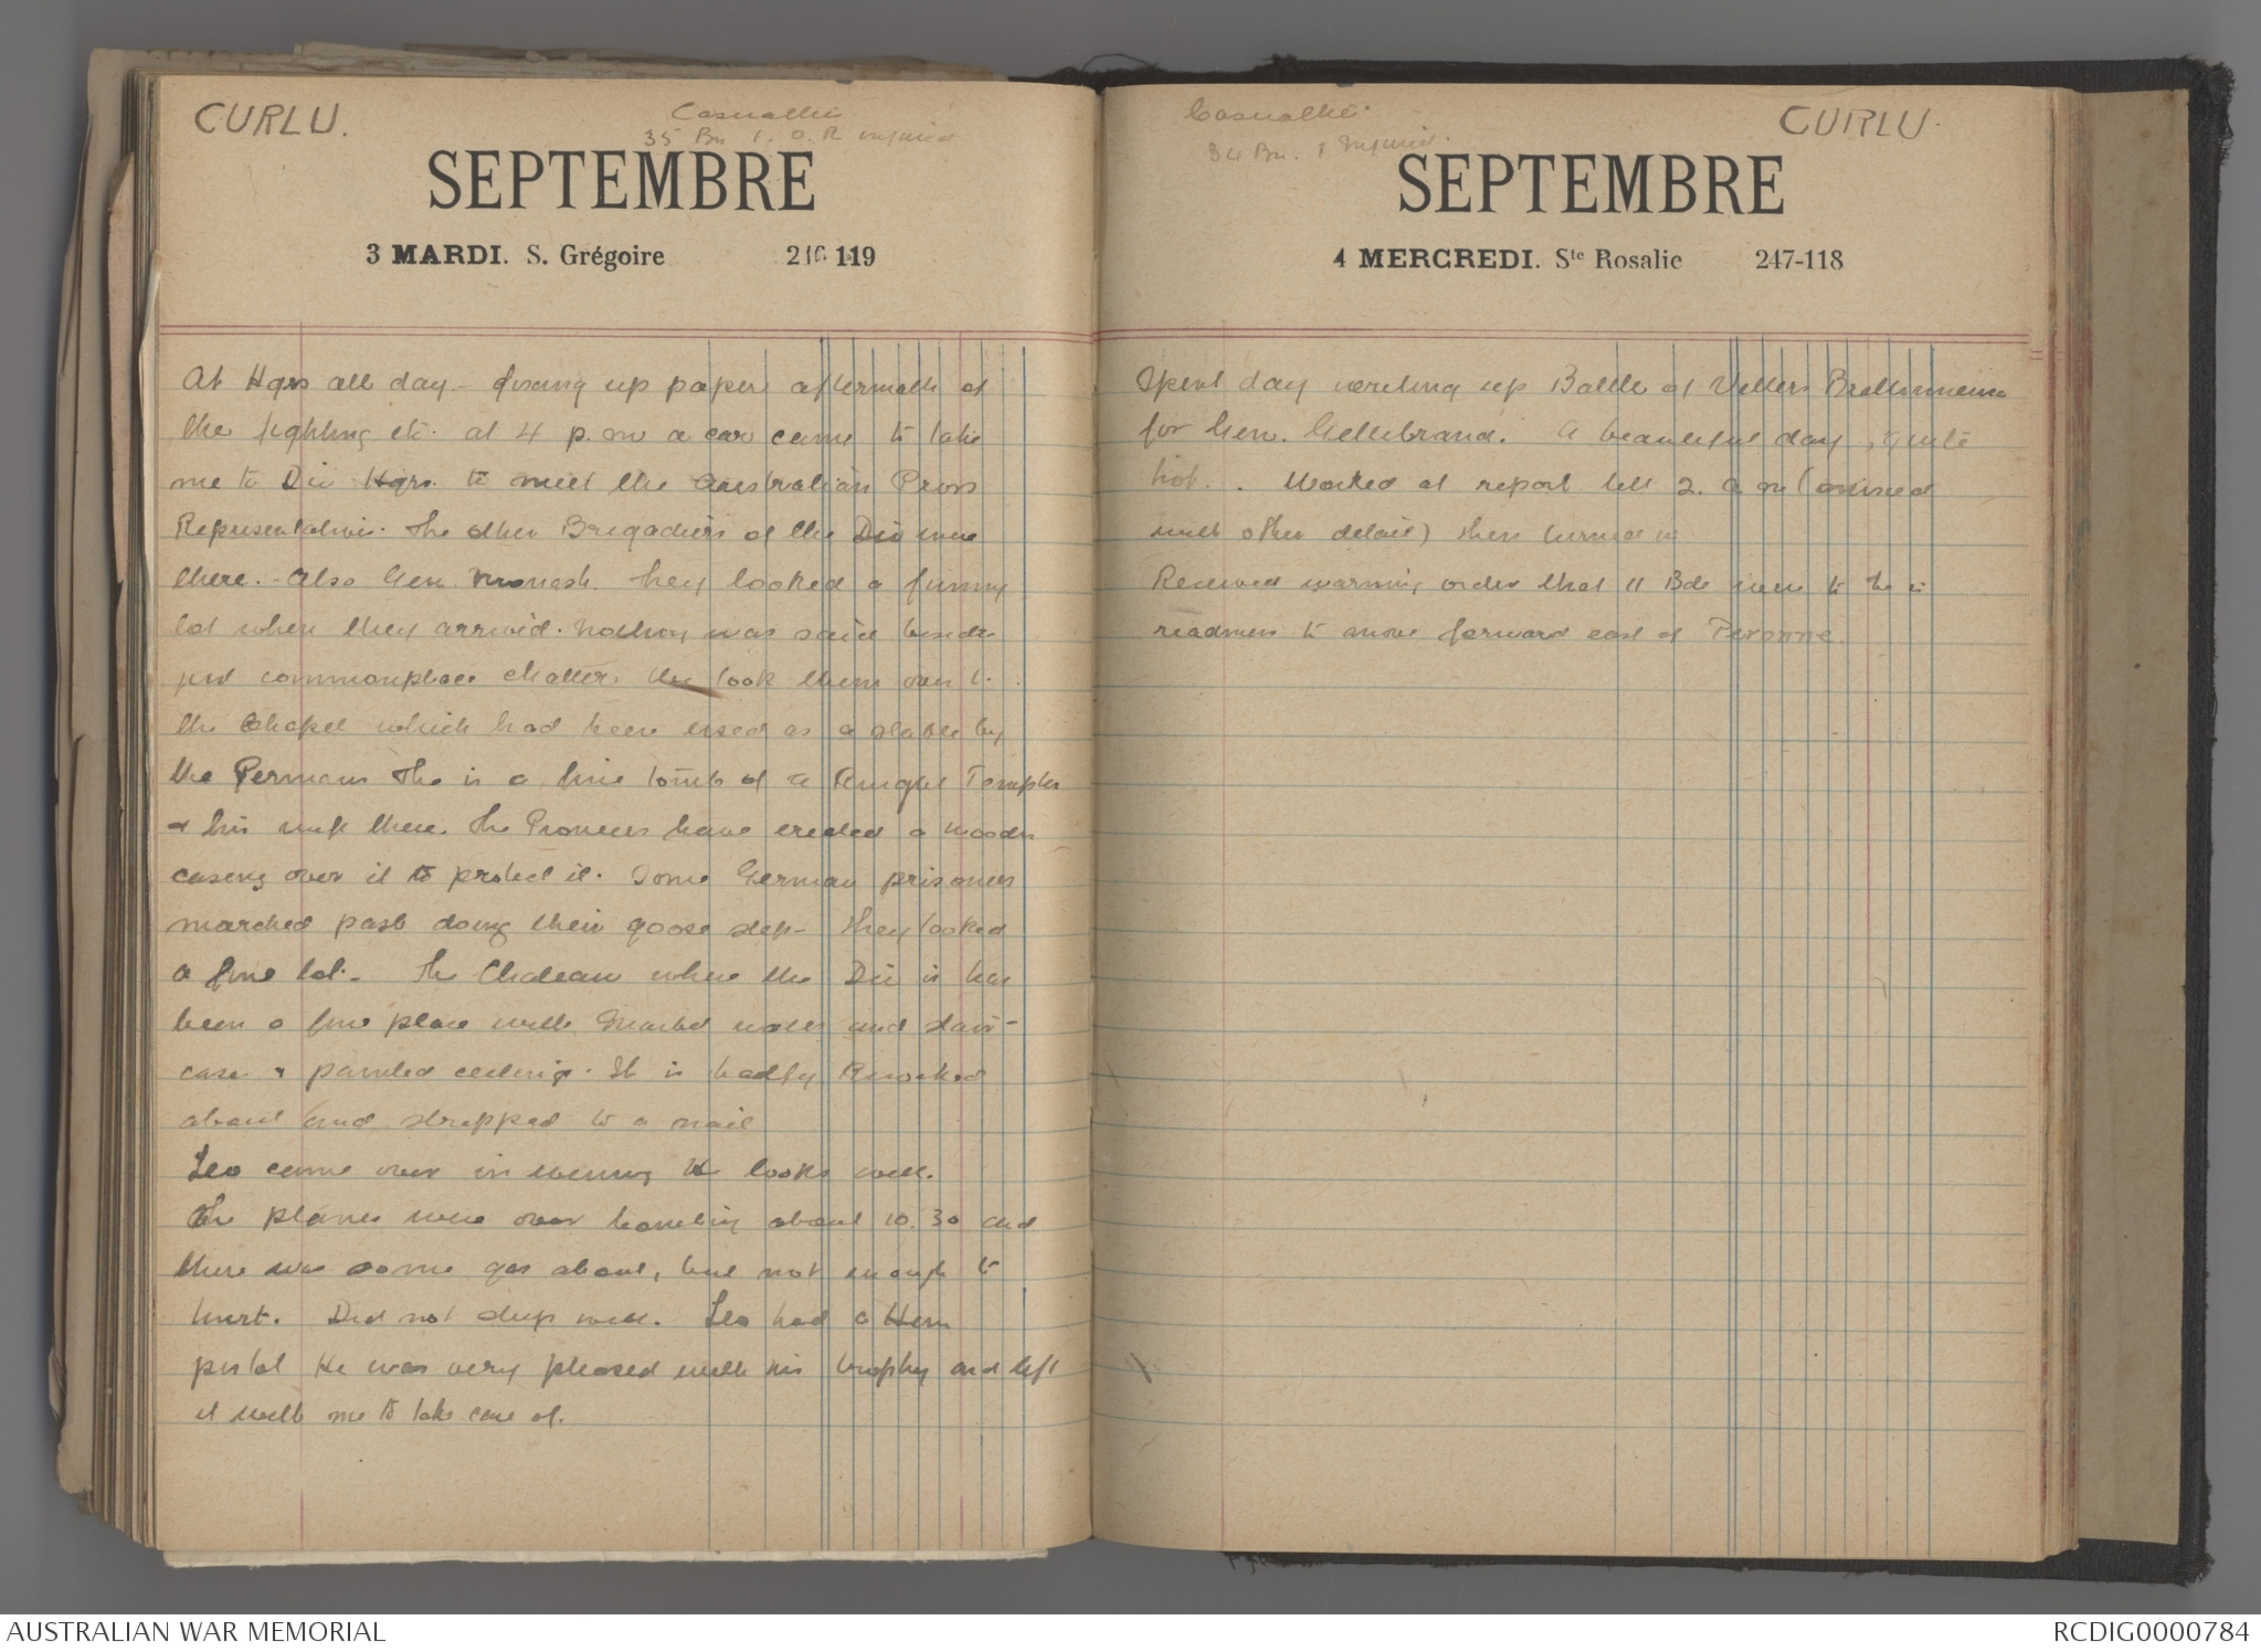 CURLU.
Casualties
35 Bn 1. O. R injured
SEPTEMBRE
3 MARDI. S. Grégoire 246 119
At Hqrs all day - fixing up papers aftermath of
the fighting etc. at 4 p.m a car came to take
me to Div Hqrs. to meet the Australian Press
Representatives. The other Brigadiers of the Div were
there. - Also Gen Monash. They looked a funny
lot when they arrived. Nothing was said beside
just commonplace chatter. We took them over to
the Chapel which had been used as a stable by
the Germans The is a fine tomb of a Knight Templer
& his wife there. The Pioneers have erected a wooden
casing over it to protect it. Some German prisoners
marched past doing their goose step - they looked
a fine lot. - The Chateau where the Div is has
been a fine place with Marbel walls and stair-
case & painted ceilings. It is badly knocked
about and strapped to a nail
Leo came over in evening He looks well.
The planes were over bombing about 10.30 and
there was some gas about, but not enough to
hurt. Did not sleep well. Leo had a Hun
pistol He was very pleased with his trophy and left
it with me to take care of.
Casualties.
34 Bn. 1 Injured.
CURLU.
SEPTEMBRE
4 MERCREDI. Ste Rosalie 247-118
Spent day writing up Battle of Villers Brettonneux
for Gen. Gellibrand. A beautiful day, quite
hot. . Worked at report till 2. a m (
with other detail) then turned in
Received warning order that 11 Bde were to be in
readiness to move forward east of Peronne.
AUSTRALIAN WAR MEMORIAL
RCDIG0000784